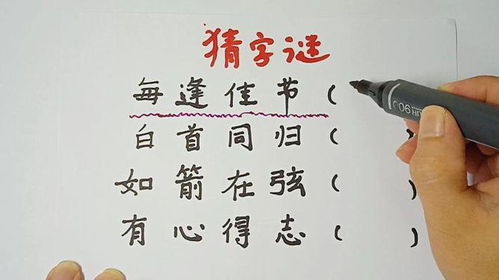 猜字谜
每逢佳节(
白首同归( )
如箭在弦( )
有心得志( )